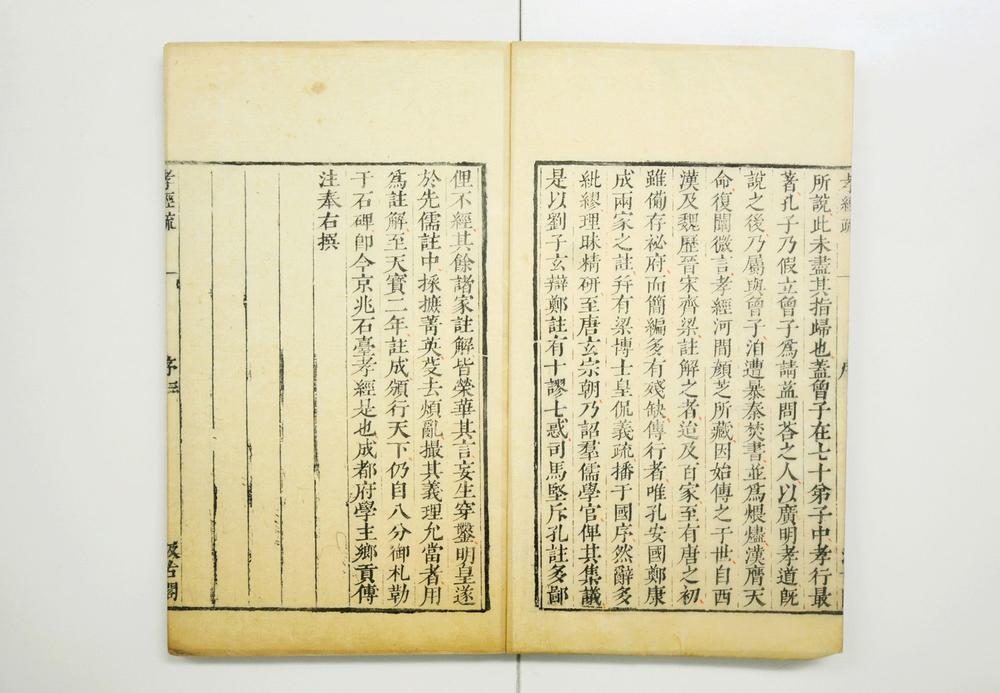 孝經疏
序
所說此未盡其指歸也蓋曾子在七十弟子中孝行最
著孔子乃假立曾子爲請益問荅之人以廣明孝道旣
說之後乃屬與曾子洎遭暴秦焚書並爲煨燼漢膺天
命復闡微言孝經河間顏芝所藏因始傳之于世自西
漢及魏歷晉宋齊梁註解之者迨及百家至有唐之初
雖備存祕府而簡編多有殘缺傳行者唯孔安國鄭康
成兩家之註并有梁博士皇侃義疏播于國序然辭多
紕繆理昧精研至唐玄宗朝乃詔羣儒學官俾其集議
是以劉子玄辯鄭註有十謬七惑司馬堅斥孔註多鄙
俚不經其餘諸家註解皆榮華其言妄生穿鑿明皇遂
於先儒註中採摭菁英芟去煩亂撮其義理允當者用
爲註解至天寶二年註成頒行天下仍自八分御札勒
于石碑卽今京兆石臺孝經是也成都府學主鄉貢傳
注奉右撰
孝經疏
序三
汲古閣